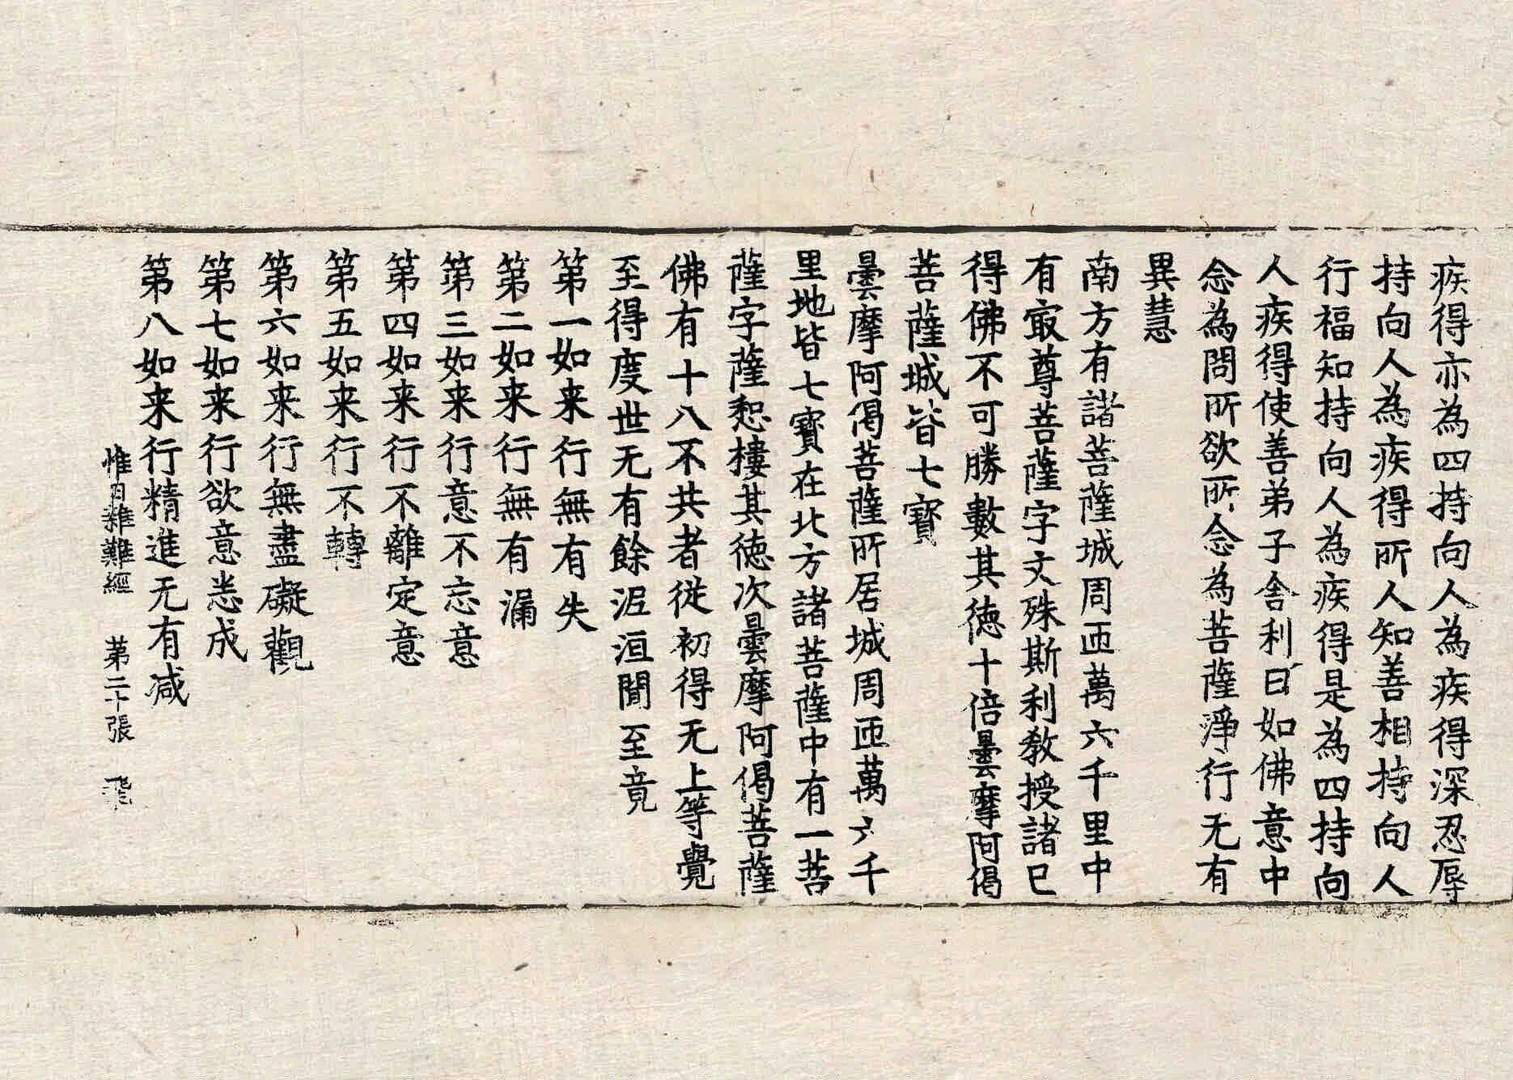 疾得亦為四持向人為疾得深忍辱
持向人為疾得所人知善相持向人
行福知持向人為疾得是為四持向
人疾得使善弟子舍利曰如佛意中
念為問所欲所念為菩薩淨行无有
異慧
南方有諸菩薩城周匝萬六千里中
有㝡尊菩薩字文殊斯利教授諸已
得佛不可勝數其徳十倍曇摩阿偈
菩薩城皆七寶
曇摩阿偈菩薩所居城周匝萬六千
里地皆七寶在北方諸菩薩中有一菩
薩字薩惒樓其徳次曇摩阿偈菩薩
佛有十八不共者従初得无上等覺
至得度世无有餘泥洹聞至竟
第一如来行無有失
第二如来行無有漏
第三如来行意不忘意
第四如来行不離定意
第五如来行不轉
第六如来行無盡礙觀
第七如来行欲意悉成
第八如来行精進无有减
惟曰雜難經 第二十張